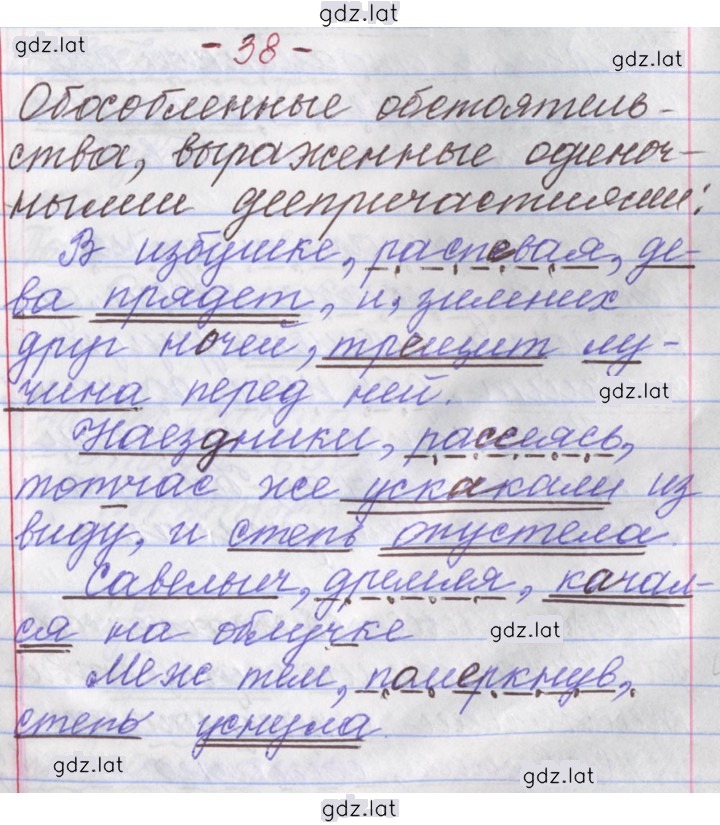 gdz.lat
gdz.lat
- 38 -
gdz.lat
Обособленные обстоятель-
ства, выраженные одиноч-
ными деепричастиями:
В избушке, распевая, де-
ва прядет, и, зимних
друг ночей, трещит лу-
чина перед ней.
gdz.lat
Наездники, рассеясь,
тотчас же ускакали из
виду, и степь опустела.
Савельич, дремля, качал-
ся на облучке
gdz.lat
Меж тем, померкнув,
степь уснула.
gdz.lat
gdz.lat
gdz.lat